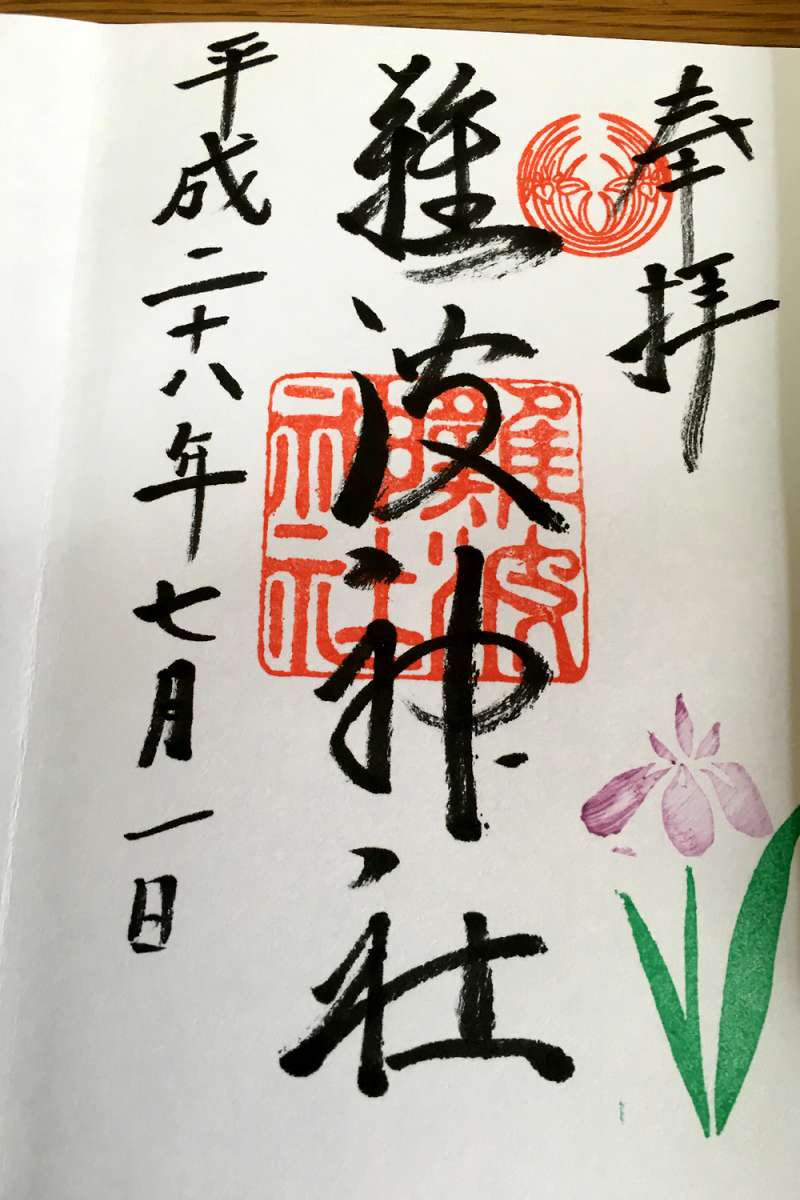 奉拝
難波神社
難波神社
平成二十八年七月一日